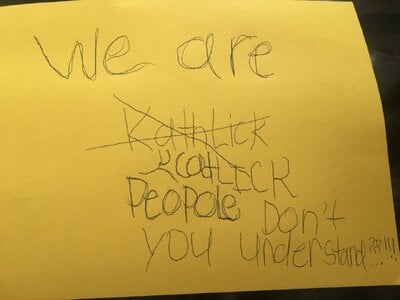 We are
Kathlick
KcatLICK
Peopole Don't
you understand??!!!